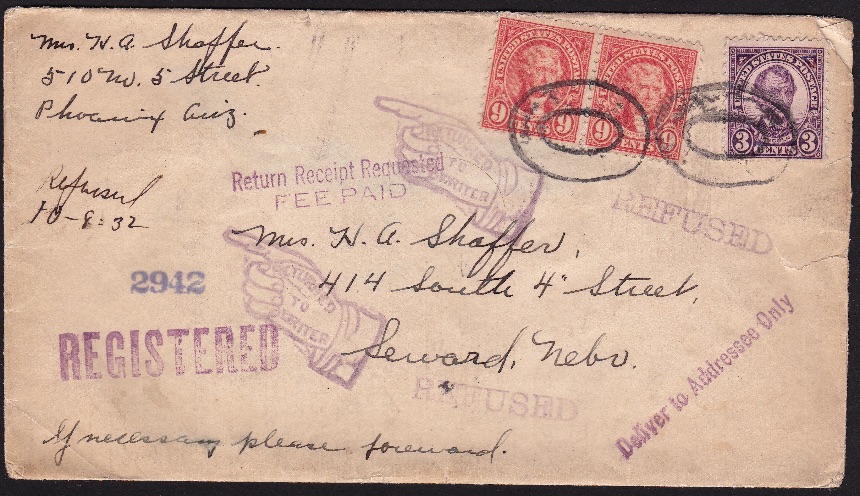 Mrs. H. A. Shaffer.
510 No. 5 Street.
Phoenix Ariz.
UNITED STATES POSTAGE
9 9
CENTS
UNITED STATES POSTAGE
9 9
CENTS
UNITED STATES POSTAGE
3 CENTS 3
Refused
10-8-32
Return Receipt Requested
FEE PAID
RETURNED
TO
WRITER
REFUSED
Mrs. H. A. Shaffer,
414 South 4" Street,
Seward, Nebr.
2942
RETURNED
TO
WRITER
REGISTERED
REFUSED
Deliver to Addressee Only
If necessary please forward.